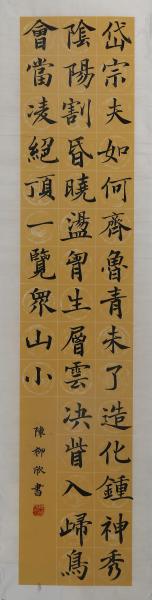 岱宗夫如何齊魯青未了造化鍾神秀
陰陽割昏曉盪胷生層雲決眥入歸鳥
會當凌絕頂一覽眾山小
陳柳
書